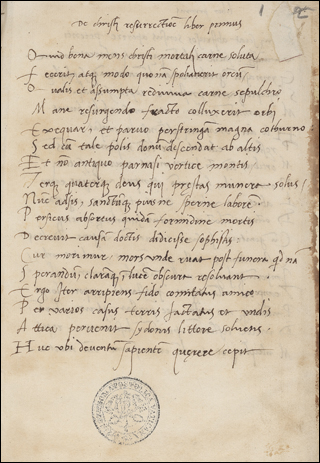 De christi resurrectioe liber primus
Quid bona mens christi mortali carne soluta
Fecerit atq modo quo na spoliauerit orcū
Qualis et assumpta rediuiua carne sepulchro
Mane resurgendo fracto colluxerit orbi
Exequar, et paruo perstringa magna cothurno
Sed cū tale polis donū descendat ab altis
Et nō antiquo parnasi vertice montis
Terq quaterq deus qui prestas munera solus
Nūc adsis, sanctūq pius ne sperne laborē
Persicus abscessus quidā formidine mortis
Decreuit causam doctis didicisse sophistas
Cur morimur mors unde ruat post funera qd nā
Sperandū, claraq lucē obscura resoluant
Ergo Iter arripiens fido comitatus amico
Per varios casus terris iactatus et undis
Attica peruenit sydonis littore soluens
Huc ubi deuentū sapientē querere cepit